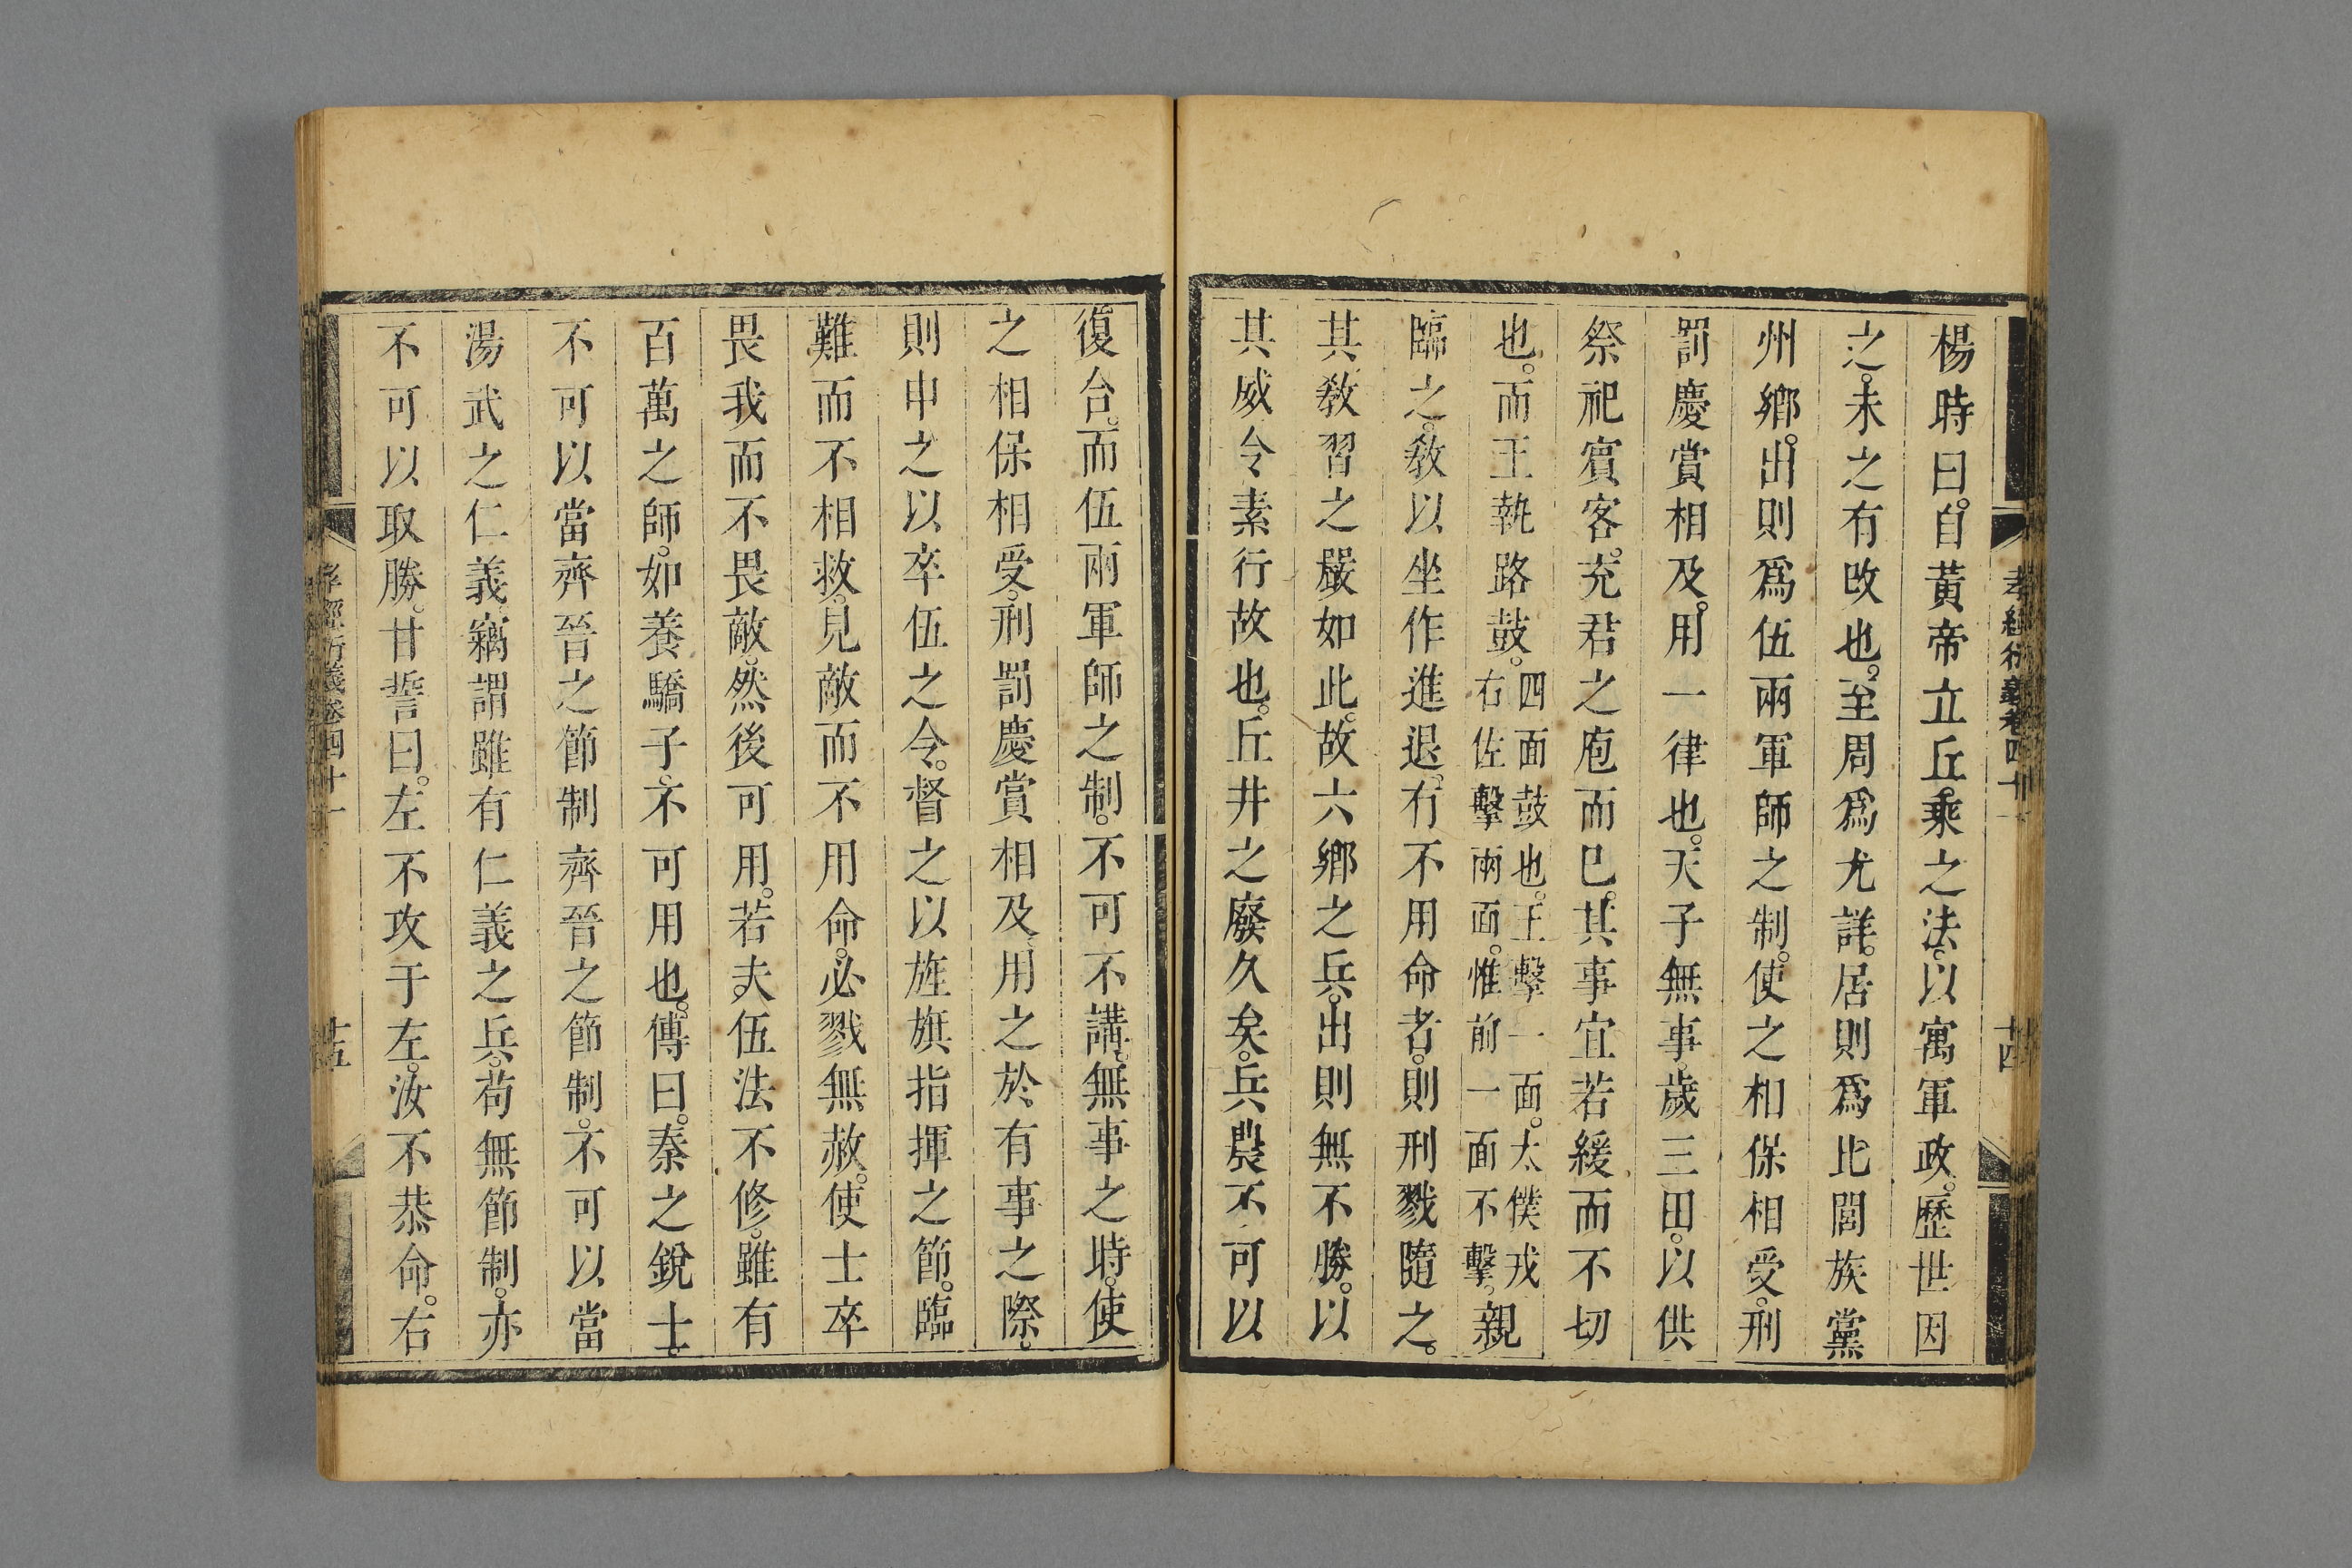 孝經衍義卷四十一
十四
楊時曰。自黃帝立丘乘之法。以寓軍政。歷世因
之。未之有改也。至周爲尤詳。居則爲比閭族黨
州鄉。出則爲伍兩軍師之制。使之相保相受。刑
罰慶賞相及。用一律也。天子無事。歲三田。以供
祭祀賓客。充君之庖而已。其事宜若緩而不切
也。而王執路鼓。四面鼓也。王擊一面。太僕戎
右佐擊兩面。惟前一面不擊。親
臨之。敎以坐作進退。有不用命者。則刑戮隨之。
其敎習之嚴如此。故六鄉之兵。出則無不勝。以
其威令素行故也。丘井之廢久矣。兵農不可以
復合。而伍兩軍師之制。不可不講。無事之時。使
之相保相受。刑罰慶賞相及。用之於有事之際。
則申之以卒伍之令。督之以旌旗指揮之節。臨
難而不相救。見敵而不用命。必戮無赦。使士卒
畏我而不畏敵。然後可用。若夫伍法不修。雖有
百萬之師。如養驕子。不可用也。傳曰。秦之銳士。
不可以當齊晉之節制。齊晉之節制。不可以當
湯武之仁義。竊謂雖有仁義之兵。苟無節制。亦
不可以取勝。甘誓曰。左不攻于左。汝不恭命。右
孝經衍義卷四十一
十五